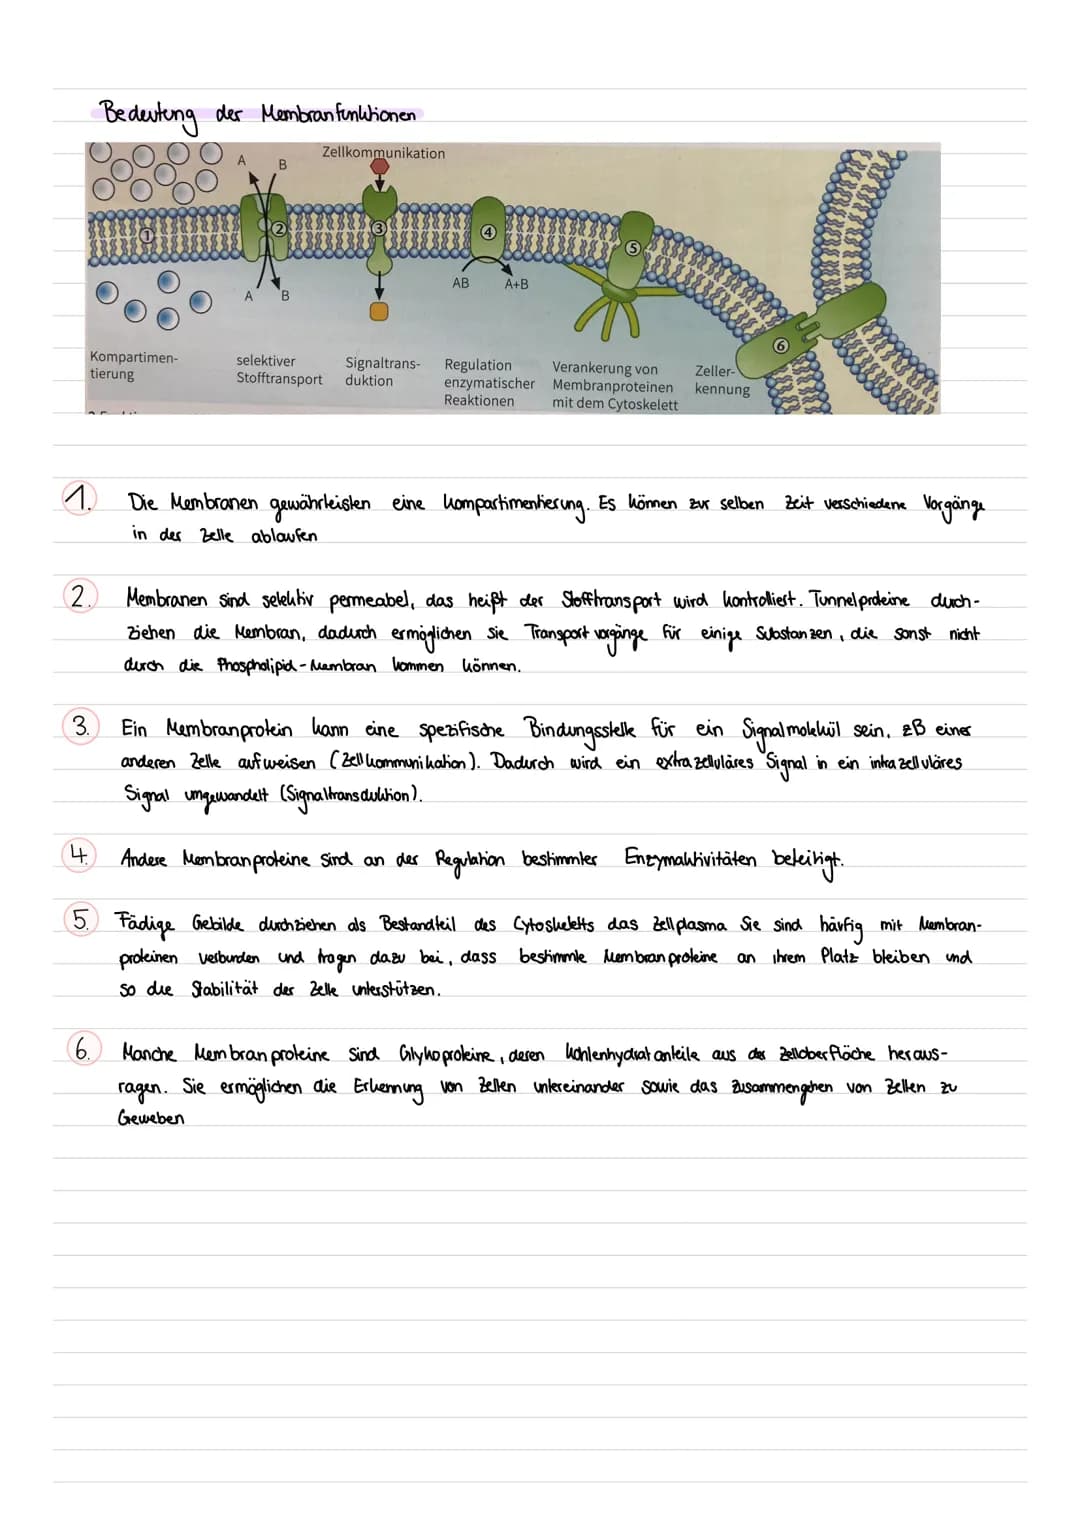 Bedeutung der Membranfunktionen
Zellkommunikation
A B
1 2 3 4 5 6
A B
AB A+B
Kompartimen-
tierung
selektiver
Stofftransport
Signaltrans-
duktion
Regulation
enzymatischer
Reaktionen
Verankerung von
Membranproteinen
mit dem Cytoskelett
Zeller-
kennung
1. Die Membranen gewährleisten eine Kompartimentierung. Es können zur selben Zeit verschiedene Vorgänge
in der Zelle ablaufen
2. Membranen sind selektiv permeabel, das heißt der Stofftransport wird kontrolliert. Tunnelproteine durch-
ziehen die Membran, dadurch ermöglichen sie Transportvorgänge für einige Substanzen, die sonst nicht
durch die Phospholipid-Membran kommen können.
3. Ein Membranprotein kann eine spezifische Bindungsstelle für ein Signalmolekül sein, zB einer
anderen Zelle aufweisen (Zellkommunikation). Dadurch wird ein extrazelluläres Signal in ein intrazelluläres
Signal umgewandelt (Signaltransduktion).
4. Andere Membranproteine sind an der Regulation bestimmter Enzymaktivitäten beteiligt.
5. Fädige Gebilde durchziehen als Bestandteil des Cytoskeletts das Zellplasma Sie sind häufig mit Membran-
proteinen verbunden und tragen dazu bei, dass bestimmte Membranproteine an ihrem Platz bleiben und
so die Stabilität der Zelle unterstützen.
6. Manche Membranproteine sind Glykoproteine, deren Kohlenhydratanteile aus der Zelloberfläche heraus-
ragen. Sie ermöglichen die Erkennung von Zellen untereinander sowie das Zusammengehen von Zellen zu
Geweben